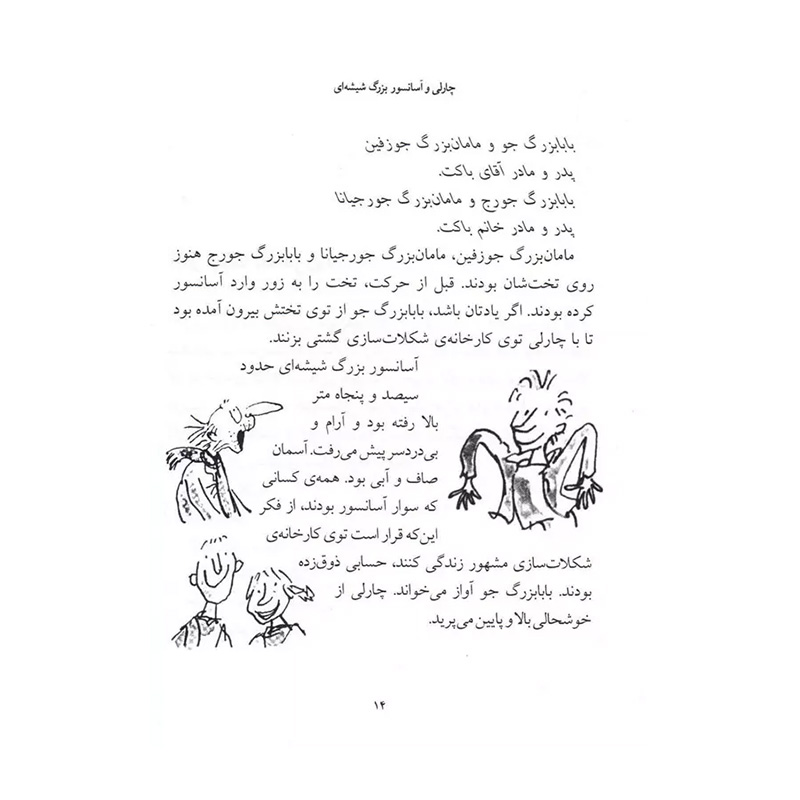 چارلی و آسانسور بزرگ شیشه‌ای
بابابزرگ جو و مامان‌بزرگ جوزفین
پدر و مادر آقای باکت.
بابابزرگ جورج و مامان‌بزرگ جورجیانا
پدر و مادر خانم باکت.
مامان‌بزرگ جوزفین، مامان‌بزرگ جورجیانا و بابابزرگ جورج هنوز
روی تخت‌شان بودند. قبل از حرکت، تخت را به زور وارد آسانسور
کرده بودند. اگر یادتان باشد، بابابزرگ جو از توی تختش بیرون آمده بود
تا با چارلی توی کارخانه‌ی شکلات‌سازی گشتی بزنند.
آسانسور بزرگ شیشه‌ای حدود
سیصد و پنجاه متر
بالا رفته بود و آرام و
بی‌دردسر پیش می‌رفت. آسمان
صاف و آبی بود. همه‌ی کسانی
که سوار آسانسور بودند، از فکر
این‌که قرار است توی کارخانه‌ی
شکلات‌سازی مشهور زندگی کنند، حسابی ذوق‌زده
بودند. بابابزرگ جو آواز می‌خواند. چارلی از
خوشحالی بالا و پایین می‌پرید.
۱۴